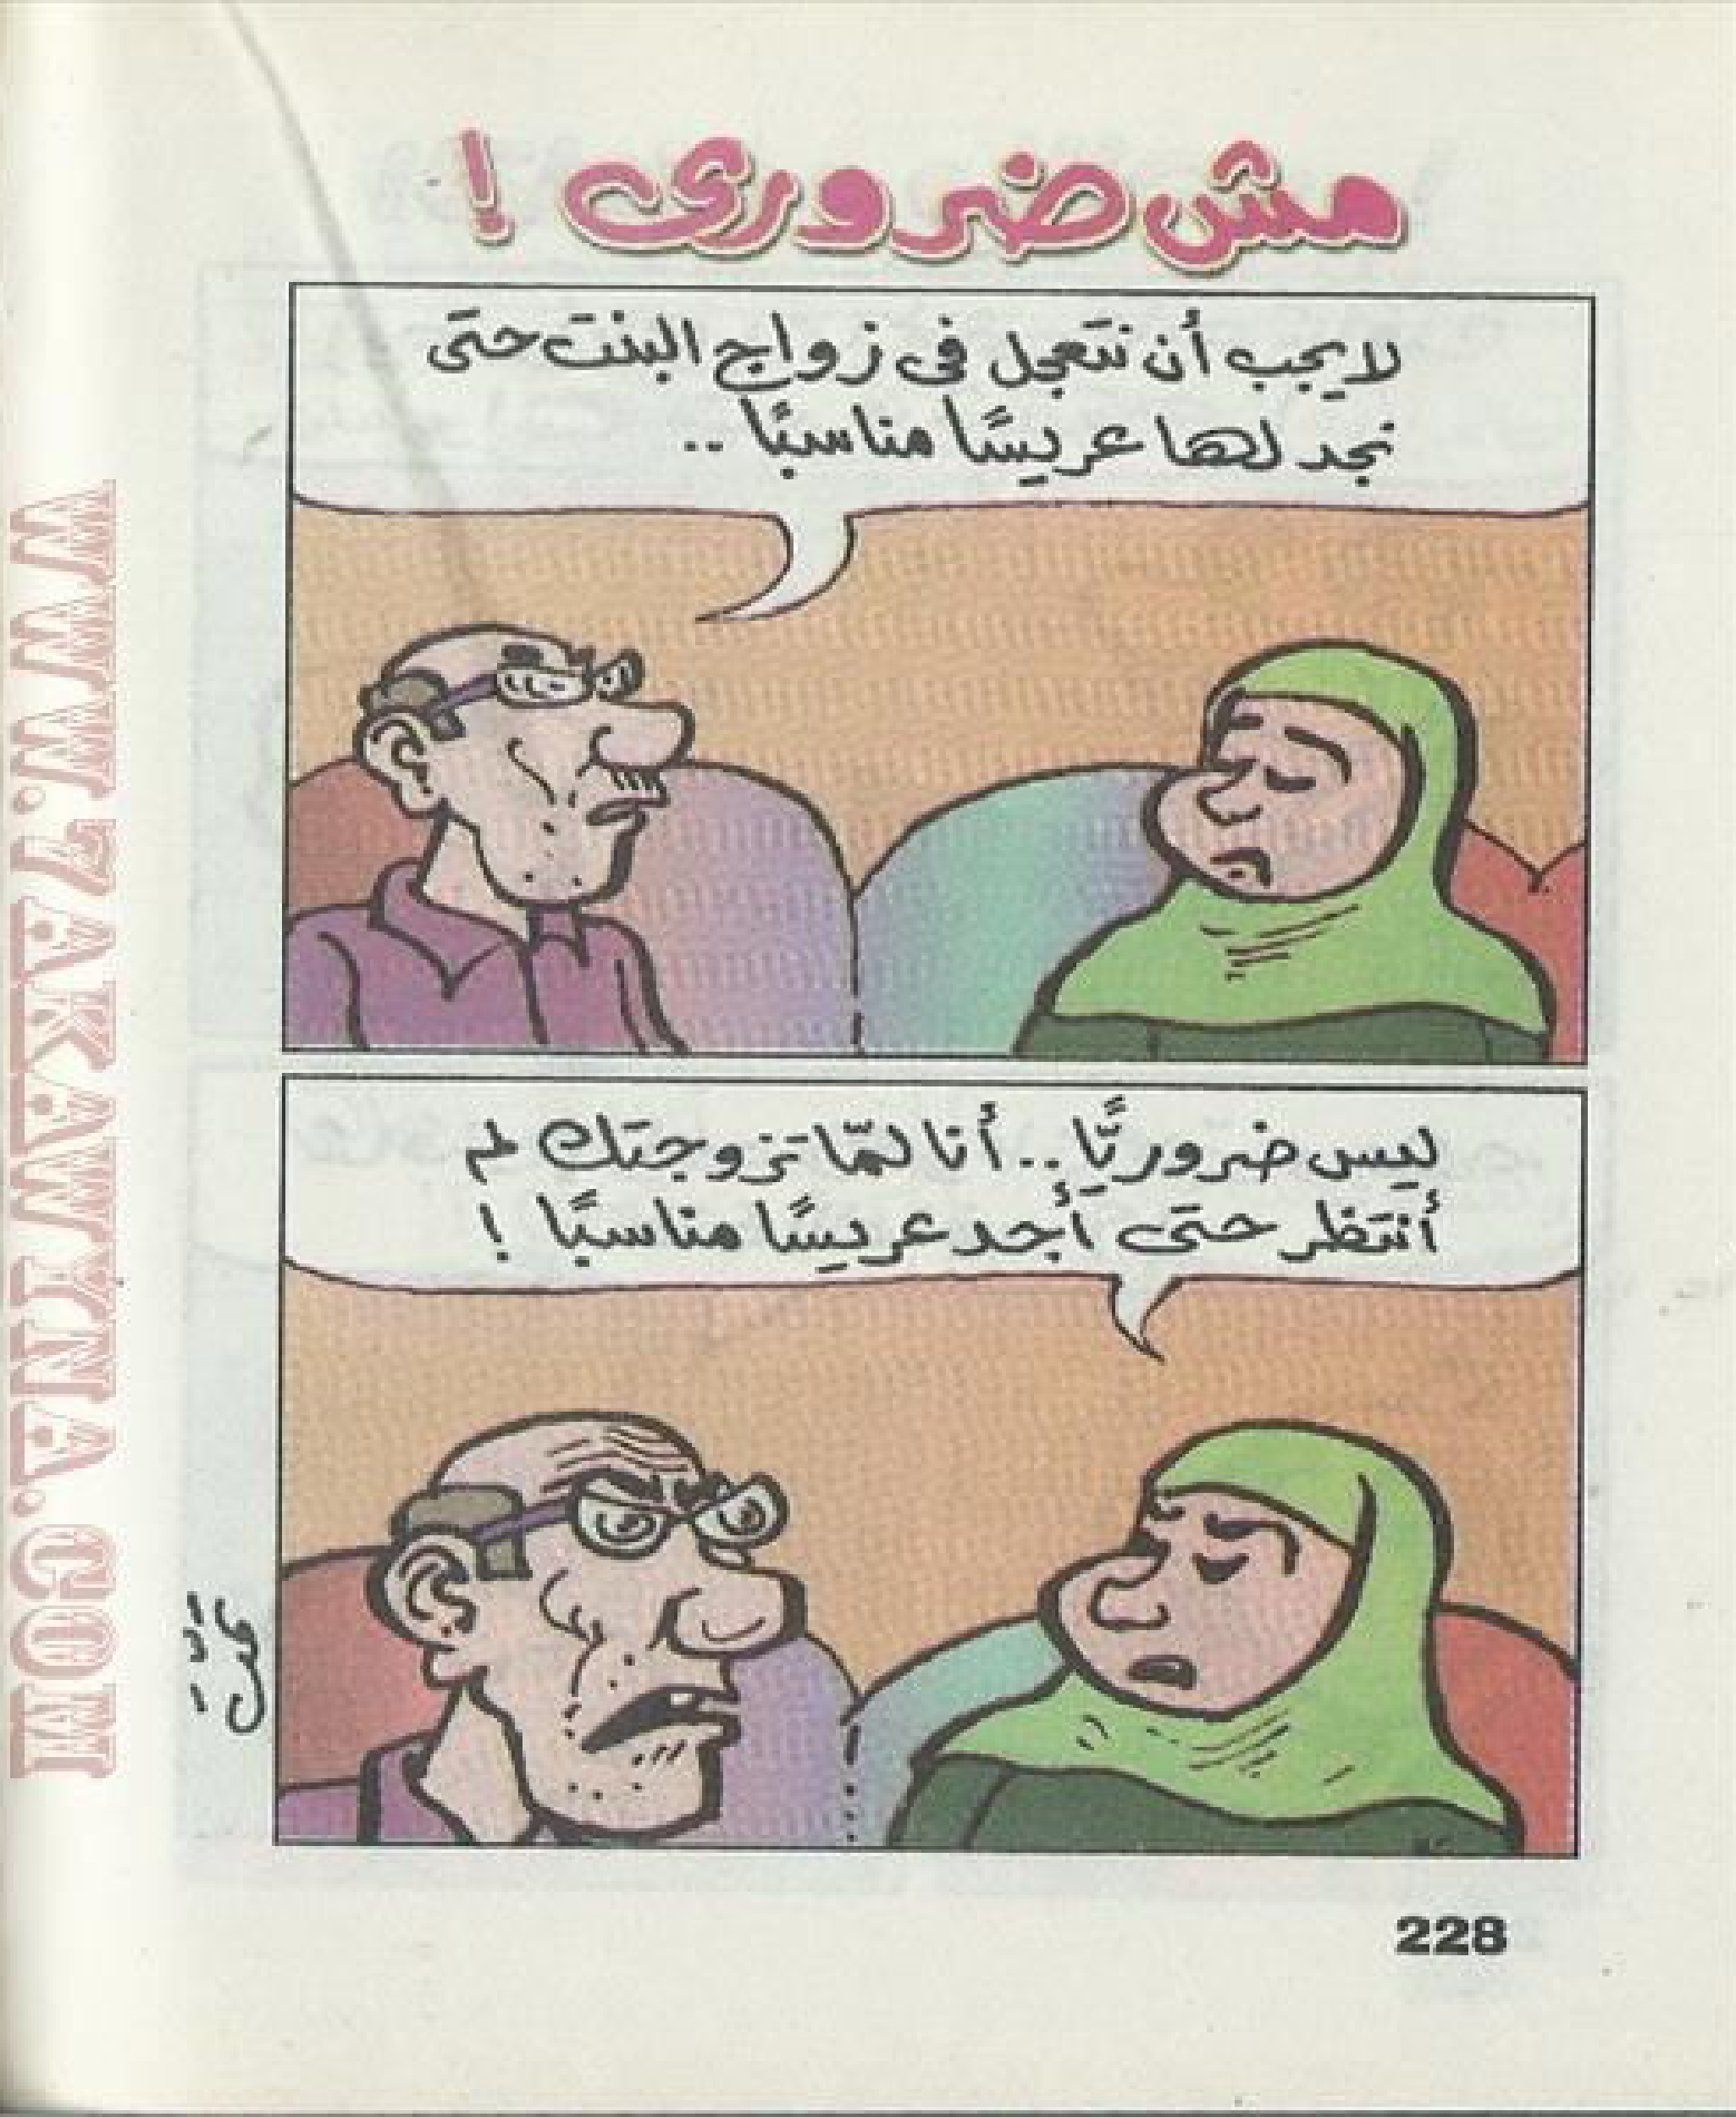 مش ضرورى !
لا يجب أن نتعجل فى زواج البنت حتى
نجد لها عريسًا مناسبًا ..
ليس ضروريًّا .. أنا لمّا تزوجتك لم
أنتظر حتى أجد عريسًا مناسبًا !
WWW.7AKAWITNA.COM
228